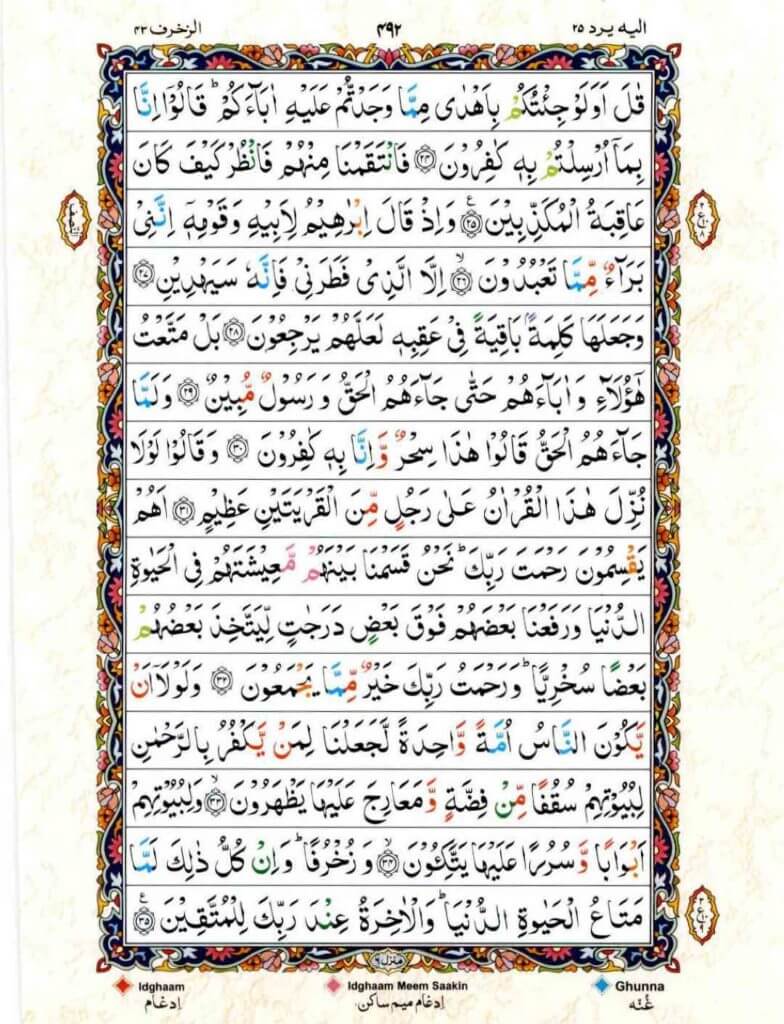 الزخرف ۴۳ ۴۹۲ الیه یرد ۲۵
قٰلَ اَوَلَوۡ جِئۡتُكُمۡ بِاَهۡدٰى مِمَّا وَجَدْتُّمۡ عَلَيۡهِ اٰبَآءَكُمۡ‌ؕ قَالُوۡۤا اِنَّا
بِمَاۤ اُرۡسِلۡتُمۡ بِهٖ كٰفِرُوۡنَ ﴿۲۴﴾ فَانْتَقَمۡنَا مِنۡهُمۡ‌ فَانْظُرۡ كَيۡفَ كَانَ
عَاقِبَةُ الۡمُكَذِّبِيۡنَ ﴿۲۵﴾ وَاِذۡ قَالَ اِبۡرٰهِيۡمُ لِاَبِيۡهِ وَقَوۡمِهٖۤ اِنَّنِىۡ
بَرَآءٌ مِّمَّا تَعۡبُدُوۡنَۙ ﴿۲۶﴾ اِلَّا الَّذِىۡ فَطَرَنِىۡ فَاِنَّهٗ سَيَهۡدِيۡنِ ﴿۲۷﴾
وَ جَعَلَهَا كَلِمَةًۢ بَاقِيَةً فِىۡ عَقِبِهٖ لَعَلَّهُمۡ يَرۡجِعُوۡنَ ﴿۲۸﴾ بَلۡ مَتَّعۡتُ
هٰٓؤُلَاۤءِ وَاٰبَآءَهُمۡ حَتّٰى جَآءَهُمُ الۡحَقُّ وَرَسُوۡلٌ مُّبِيۡنٌ ﴿۲۹﴾ وَلَمَّا
جَآءَهُمُ الۡحَقُّ قَالُوۡا هٰذَا سِحۡرٌ وَّاِنَّا بِهٖ كٰفِرُوۡنَ ﴿۳۰﴾ وَقَالُوۡا لَوۡلَا
نُزِّلَ هٰذَا الۡقُرۡاٰنُ عَلٰى رَجُلٍ مِّنَ الۡقَرۡيَتَيۡنِ عَظِيۡمٍ ﴿۳۱﴾ اَهُمۡ
يَقۡسِمُوۡنَ رَحۡمَتَ رَبِّكَ‌ؕ نَحۡنُ قَسَمۡنَا بَيۡنَهُمۡ مَّعِيۡشَتَهُمۡ فِى الۡحَيٰوةِ
الدُّنۡيَا‌ وَرَفَعۡنَا بَعۡضَهُمۡ فَوۡقَ بَعۡضٍ دَرَجٰتٍ لِّيَتَّخِذَ بَعۡضُهُمۡ
بَعۡضًا سُخۡرِيًّا‌ؕ وَرَحۡمَتُ رَبِّكَ خَيۡرٌ مِّمَّا يَجۡمَعُوۡنَ ﴿۳۲﴾ وَلَوۡلَاۤ اَنۡ
يَّكُوۡنَ النَّاسُ اُمَّةً وَّاحِدَةً لَّجَعَلۡنَا لِمَنۡ يَّكۡفُرُ بِالرَّحۡمٰنِ
لِبُيُوۡتِهِمۡ سُقُفًا مِّنۡ فِضَّةٍ وَّمَعَارِجَ عَلَيۡهَا يَظۡهَرُوۡنَ ﴿۳۳﴾ وَلِبُيُوۡتِهِمۡ
اَبۡوَابًا وَّسُرُرًا عَلَيۡهَا يَتَّكِـُٔوۡنَ ﴿۳۴﴾ وَزُخۡرُفًا‌ؕ وَاِنۡ كُلُّ ذٰلِكَ لَمَّا
مَتَاعُ الۡحَيٰوةِ الدُّنۡيَا‌ؕ وَالۡاٰخِرَةُ عِنۡدَ رَبِّكَ لِلۡمُتَّقِيۡنَ ﴿۳۵﴾
منزل ۶
Idghaam Idghaam Meem Saakin Ghunna
اِدغَام اِدغَام مِیم سَاکِن۔ غُنّه